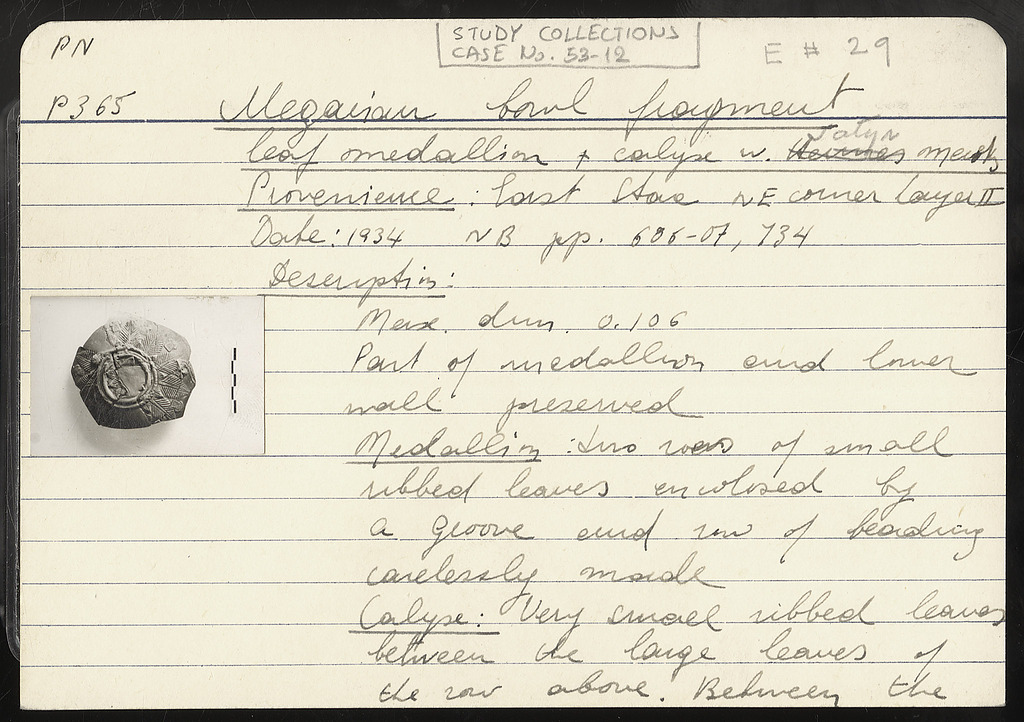 PN
STUDY COLLECTIONS
CASE No. 53-12
E # 29
P365
Megarian bowl fragment
Satyr
leaf medallion + calyx w. Hermes masks
Provenience: East Stoa NE corner Layer II
Date: 1934 NB pp. 606-07, 734
Description:
Max. dim. 0.106
Part of medallion and lower
wall preserved
Medallion: two rows of small
ribbed leaves enclosed by
a groove and row of beading
carelessly made
Calyx: Very small ribbed leaves
between the large leaves of
the row above. Between the